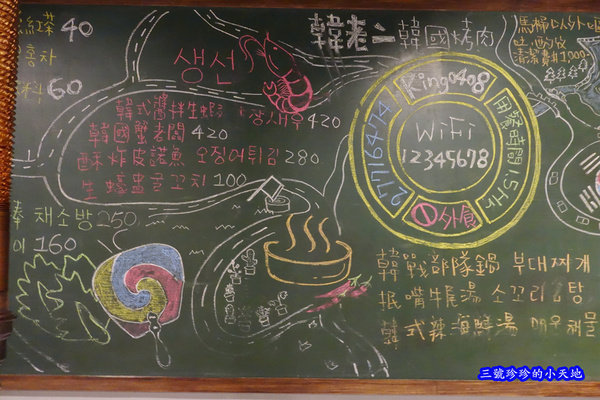 紅茶 40
홍차
料 60
생선
韓式醬拌生蝦 장새우 420
韓國蟹老闆 420
酥炸皮諾魚 오징어튀김 280
生蠔 굴꼬치 100
채소방 250
이 160
韓老二 韓國烤肉
King0408
用餐時間1.5H
外食
27716474
WiFi
12345678
馬桶以外
清潔費$1,000
韓戰部隊鍋 부대찌개
抿嘴牛尾湯 소꼬리곰탕
韓式辣海鮮湯 매운해물
三號珍珍的小天地